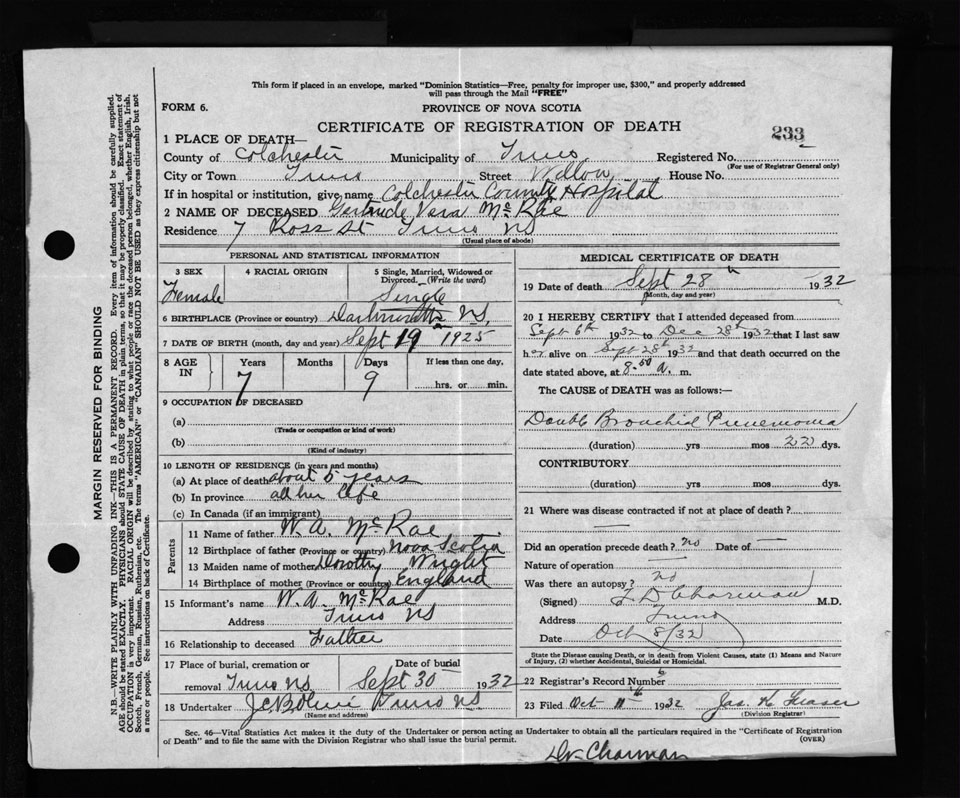 This form if placed in an envelope, marked "Dominion Statistics—Free, penalty for improper use, $300," and properly addressed
will pass through the Mail "FREE"
FORM 6.
PROVINCE OF NOVA SCOTIA
CERTIFICATE OF REGISTRATION OF DEATH
233
1 PLACE OF DEATH—
County of Colchester Municipality of Truro Registered No.
(For use of Registrar General only)
City or Town Truro Street Willow House No.
If in hospital or institution, give name Colchester County Hospital
2 NAME OF DECEASED Gertrude Vera McRae
Residence 7 Ross St Truro NS
(Usual place of abode)
PERSONAL AND STATISTICAL INFORMATION
3 SEX 4 RACIAL ORIGIN 5 Single, Married, Widowed or
Divorced.—(Write the word)
Female Single
6 BIRTHPLACE (Province or country) Dartmouth NS,
7 DATE OF BIRTH (month, day and year) Sept 19 1925
8 AGE IN Years Months Days If less than one day,
7 9 hrs. or min.
9 OCCUPATION OF DECEASED
(a)
(Trade or occupation or kind of work)
(b)
(Kind of industry)
10 LENGTH OF RESIDENCE (in years and months)
(a) At place of death about 5 years
(b) In province all her life
(c) In Canada (if an immigrant)
Parents
11 Name of father W. A. McRae
12 Birthplace of father (Province or country) Nova Scotia
13 Maiden name of mother Dorothy Wright
14 Birthplace of mother (Province or country) England
15 Informant's name W. A. McRae
Address Truro NS
16 Relationship to deceased Father
17 Place of burial, cremation or Date of burial
removal Truro NS Sept 30 1932
18 Undertaker Truro NS
(Name and address)
MEDICAL CERTIFICATE OF DEATH
19 Date of death Sept 28 1932
(Month, day and year)
20 I HEREBY CERTIFY that I attended deceased from
Sept 6th 1932 to Dec 28th 1932 that I last saw
her alive on Sept 28th 1932 and that death occurred on the
date stated above, at 8-50 a. m.
The CAUSE of DEATH was as follows:—
Double Bronchial Pneumonia
(duration) yrs mos 22 dys.
CONTRIBUTORY
(duration) yrs mos dys.
21 Where was disease contracted if not at place of death?
Did an operation precede death? no Date of —
Nature of operation —
Was there an autopsy? no
(Signed) F D Charman M.D.
Address Truro
Date Oct 8/32
State the Disease causing Death, or in death from Violent Causes, state (1) Means and Nature
of Injury, (2) whether Accidental, Suicidal or Homicidal.
22 Registrar's Record Number 6
23 Filed Oct 11th 1932 Jas. K Fraser
(Division Registrar)
Sec. 46—Vital Statistics Act makes it the duty of the Undertaker or person acting as Undertaker to obtain all the particulars required in the "Certificate of Registration
of Death" and to file the same with the Division Registrar who shall issue the burial permit. (OVER)
Dr Charman
MARGIN RESERVED FOR BINDING
N.B.—WRITE PLAINLY WITH UNFADING INK—THIS IS A PERMANENT RECORD. Every item of information should be carefully supplied.
AGE should be stated EXACTLY. PHYSICIANS should STATE CAUSE OF DEATH in plain terms, so that it may be properly classified. Exact statement of
OCCUPATION is very important. RACIAL ORIGIN will be described by stating to what people or race the deceased person belonged, whether English, Irish,
Scotch, French, German, Russian, Ruthenian, etc. The terms "AMERICAN" or "CANADIAN" SHOULD NOT BE USED as they express citizenship but not
a race or people. See instructions on back of Certificate.